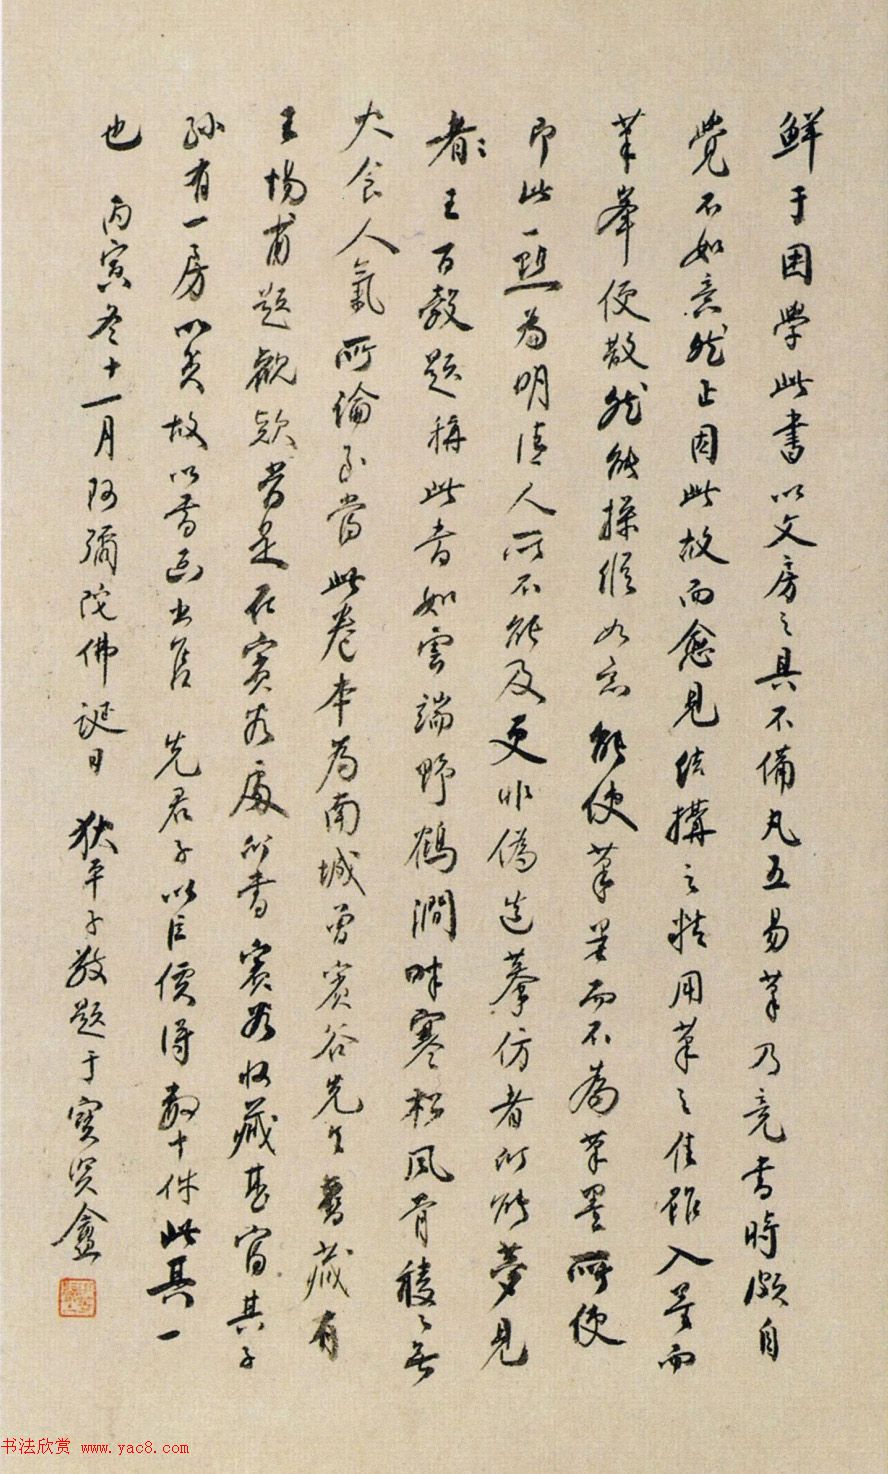 鮮于困學此書以文房之具不備凡五易筆乃竟書時頗自
覺不如意然正因此故而愈見結構之精用筆之佳雖入墨而
筆峯便散然能操縱如意能使筆墨而不為筆墨所使
即此一點為明清人所不能及更非偽造摹仿者所能夢見
者〻王百穀題稱此書如雲端野鶴澗畔寒松風骨稜〻無
火食人氣所論至當此卷本為南城曾賓谷先生舊藏有
王惕甫題觀款當是在賓谷處所書賓谷收藏甚富其子
孫有一房以貧故以書畫出售 先君子以巨價得數十件此其一
也 丙寅冬十一月阿彌陀佛誕日 狄平子敬題于寶賢盦
书法欣赏 www.yac8.com